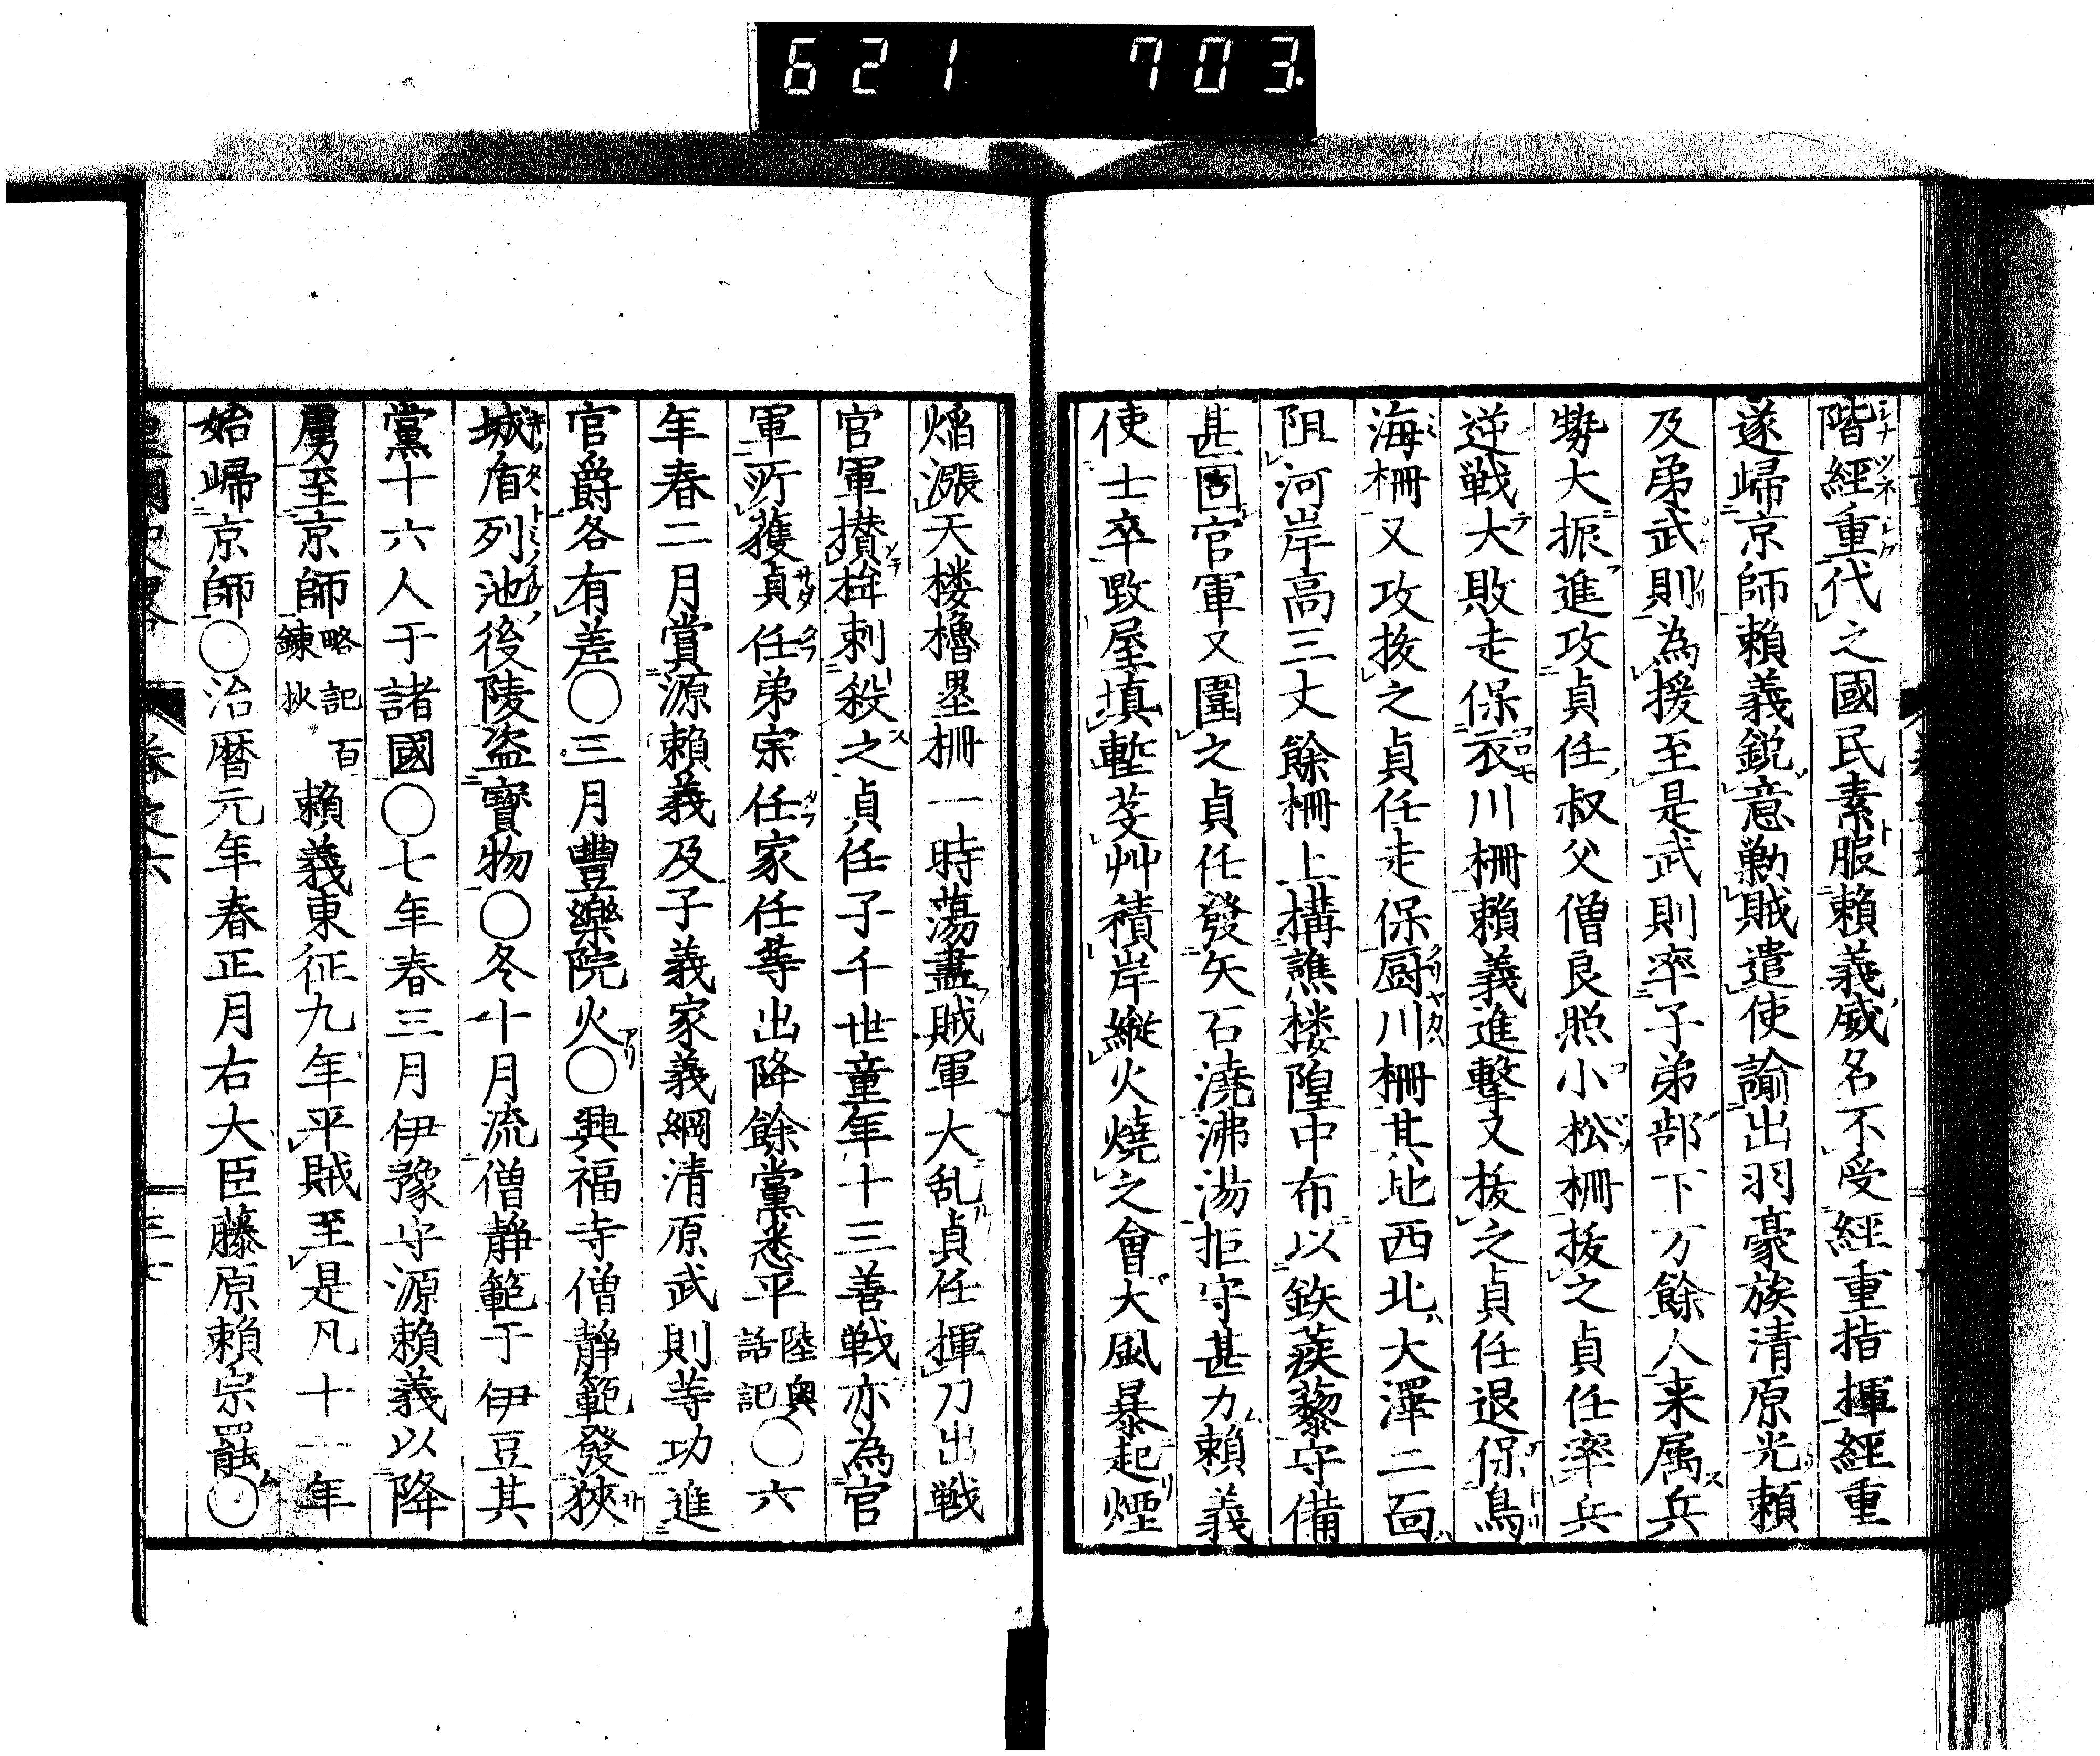 621 703.
階經重代之國民素服賴義威名不受經重指揮經重
遂歸京師賴義銳意勦賊遣使諭出羽豪族清原光賴
及弟武則為援至是武則率子弟部下万餘人来属兵
勢大振進攻貞任叔父僧良照小松柵拔之貞任率兵
逆戦大敗走保衣川柵賴義進擊又拔之貞任退保鳥
海柵又攻拔之貞任走保厨川柵其地西北大澤二面
阻河岸高三丈餘柵上構譙楼隍中布以鉄蒺藜守備
甚固官軍又圍之貞任發矢石澆沸湯拒守甚力賴義
使士卒毀屋填塹芟艸積岸縱火燒之會大風暴起煙
焔漲天楼櫓塁柵一時蕩盡賊軍大乱貞任揮刀出戦
官軍攅桙刺殺之貞任子千世童年十三善戦亦為官
軍所獲貞任弟宗任家任等出降餘黨悉平陸奥話記〇六
年春二月賞源賴義及子義家義綱清原武則等功進
官爵各有差〇三月豐樂院火〇興福寺僧静範發狹
城盾列池後陵盗寳物〇冬十月流僧静範于伊豆其
黨十六人于諸國〇七年春三月伊豫守源賴義以降
虜至京師略記百鍊抄賴義東征九年平賊至是凡十一年
始歸京師〇治暦元年春正月右大臣藤原賴宗罷〇
卷之六